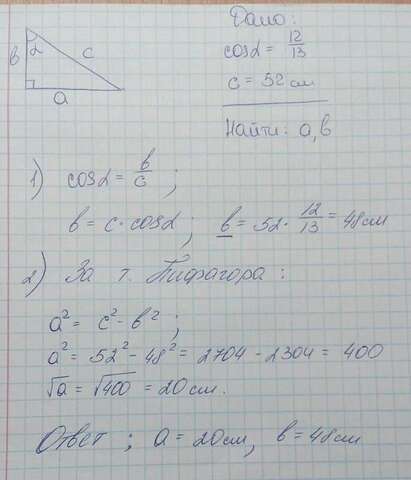 Дано:
cosα = 12/13
c = 52 см
Найти: a, в
в α c
a
1) cosα = в/c ;
в = c · cosα ; в = 52 · 12/13 = 48 см
2) За т. Пифагора :
a² = c² - в² ;
a² = 52² - 48² = 2704 - 2304 = 400
√a = √400 = 20 см.
Ответ ; a = 20 см, в = 48 см